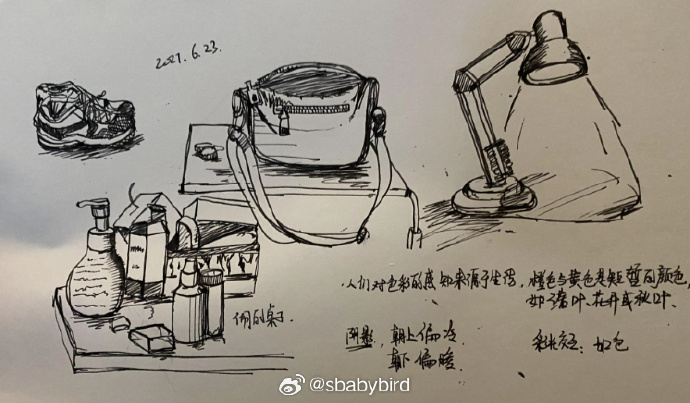 2021.6.23.
人们对色彩的感知来源于生活，橙色与黄色是短暂的颜色，
如落叶、花卉或秋叶、
的桌子
阴影，朝上偏冷
朝下偏暖
@sbabybird